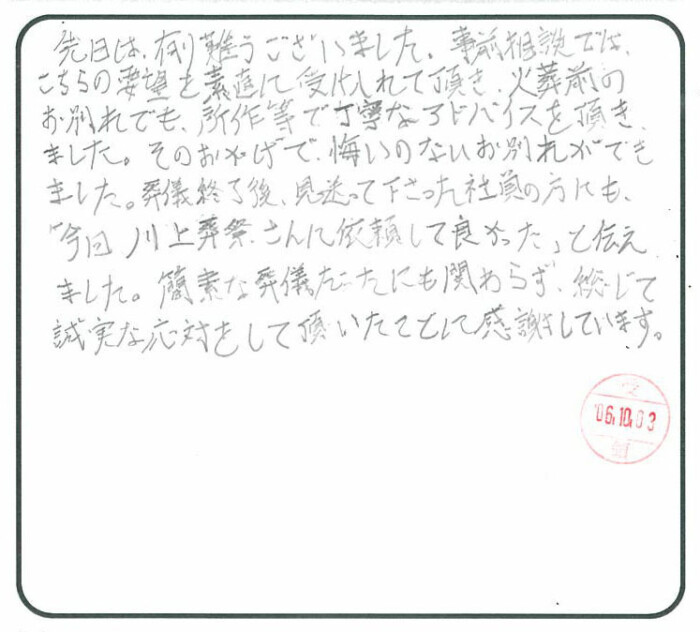 先日は、有り難うございました。事前相談では、
こちらの要望を素直に受け入れて頂き、火葬前の
お別れでも、所作等で丁寧なアドバイスを頂き
ました。そのおかげで、悔いのないお別れができ
ました。葬儀終了後、見送って下さった社員の方にも、
「今回川上葬祭さんに依頼して良かった」と伝え
ました。簡素な葬儀だったにも関わらず、総じて
誠実な応対をして頂いたことに感謝しています。
受
'06.10.03
領